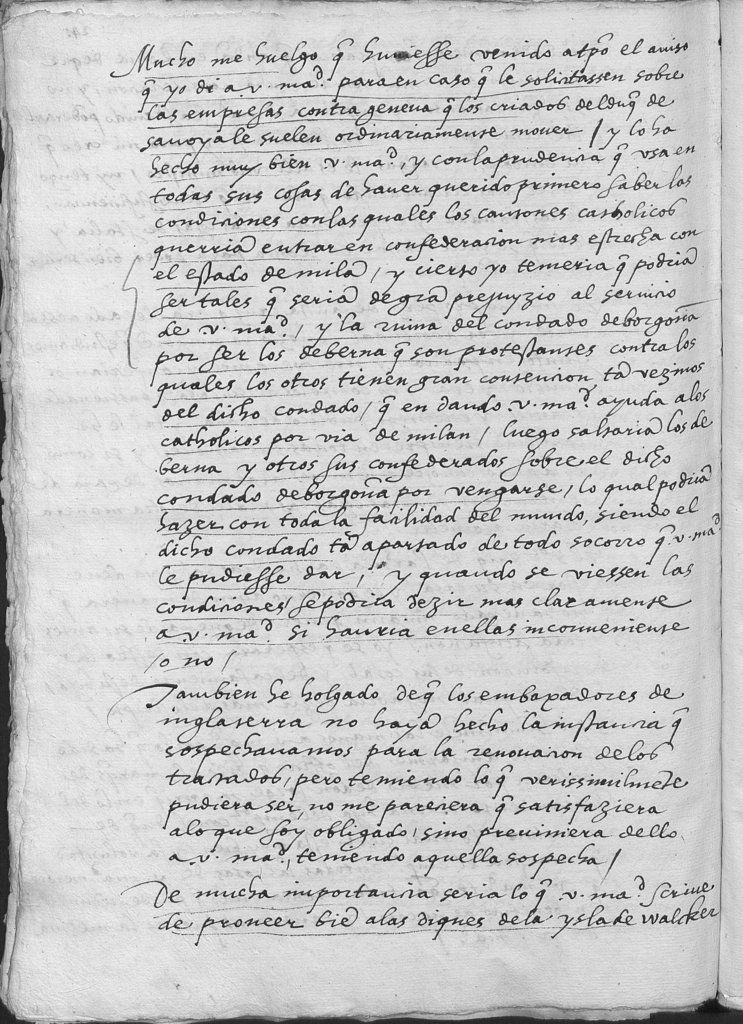 Mucho me huelgo q̃ huviesse venido a tpõ el aviso
q̃ yo di a v. ma.d para en caso q̃ le solicitassen sobre
las empresas contra geneva q̃ los criados del duq̃ de
savoya le suelen ordinariamente mover / y lo ha
hecho muy bien v. ma.d, y con la prudencia q̃ usa en
todas sus cosas de haver querido primero saber las
condiciones con las quales los cantones catholicos
querriã entrar en confederacion mas estrecha con
el estado de milã, y cierto yo temeria q̃ podriã
ser tales q̃ seriã de grã prejuyzio al servicio
de v. ma.d, y la ruina del condado de borgoña
por ser los de berna q̃ son protestantes contra los
quales los otros tienen gran contencion tã vezinos
del dicho condado, q̃ en dando v. ma.d ayuda a los
catholicos por via de milan, luego saltariã los de
berna y otros sus confederados sobre el dicho
condado de borgoña por vengarse, lo qual podriã
hazer con toda la facilidad del mundo, siendo el
dicho condado tã apartado de todo socorro q̃ v. ma.d
le pudiesse dar, y quando se viessen las
condiciones se podria dezir mas claramente
a v. ma.d si havria en ellas inconveniente
/o no /
Tambien he holgado de q̃ los embaxadores de
inglaterra no hayã hecho la instancia q̃
sospechavamos para la renovacion de los
tractados, pero temiendo lo q̃ verissimilmẽte
pudiera ser, no me pareciera q̃ satisfaziera
a lo que soy obligado, sino previniera dello
a v. ma.d, temiendo aquella sospecha /
De mucha importancia seria lo q̃ v. ma.d scrive
de proveer biẽ a las diques de la ysla de walcker